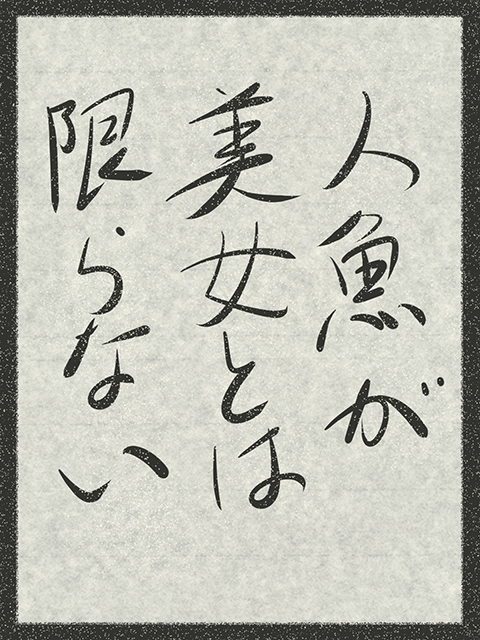 人魚が
美女とは
限らない